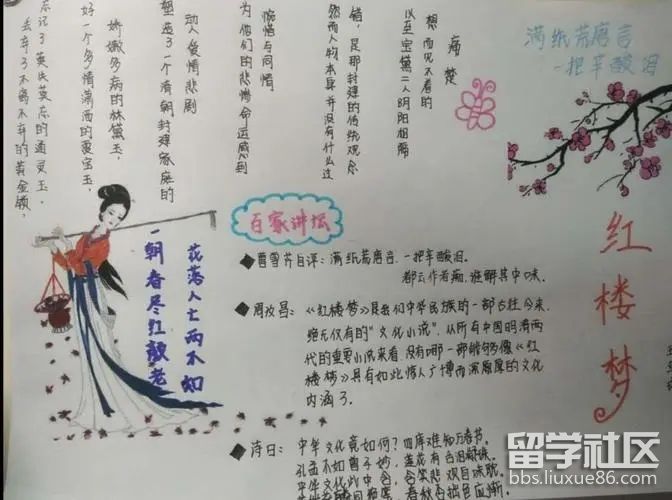 满纸荒唐言
一把辛酸泪
红楼梦
痛楚
想而见不着的
以至宝黛二人阴阳相隔
错，是那封建的传统观念
然而人物本身并没有什么过
惋惜与同情
为他们的悲惨命运感到
动人爱情悲剧
塑造了一个清朝封建家庭的
娇嫩多病的林黛玉，
好一个多情潇洒的贾宝玉，
忘记了莫失莫忘的通灵玉，
丢弃了不离不弃的黄金锁，
一朝春尽红颜老
花落人亡两不知
百家讲坛
◆曹雪芹自评：满纸荒唐言，一把辛酸泪。
都云作者痴，谁解其中味。
◆周汝昌：《红楼梦》是我们中华民族的一部古往今来、
绝无仅有的“文化小说”，从所有中国明清两
代的重要小说来看，没有哪一部能够像《红
楼梦》具有如此惊人广博而深厚的文化
内涵了。
◆诗曰：中华文化竟如何？四库难知万春节。
孔孟不如曹子妙，莲花有舌泪凝珠。
留学社区
bbs.liuxue86.com